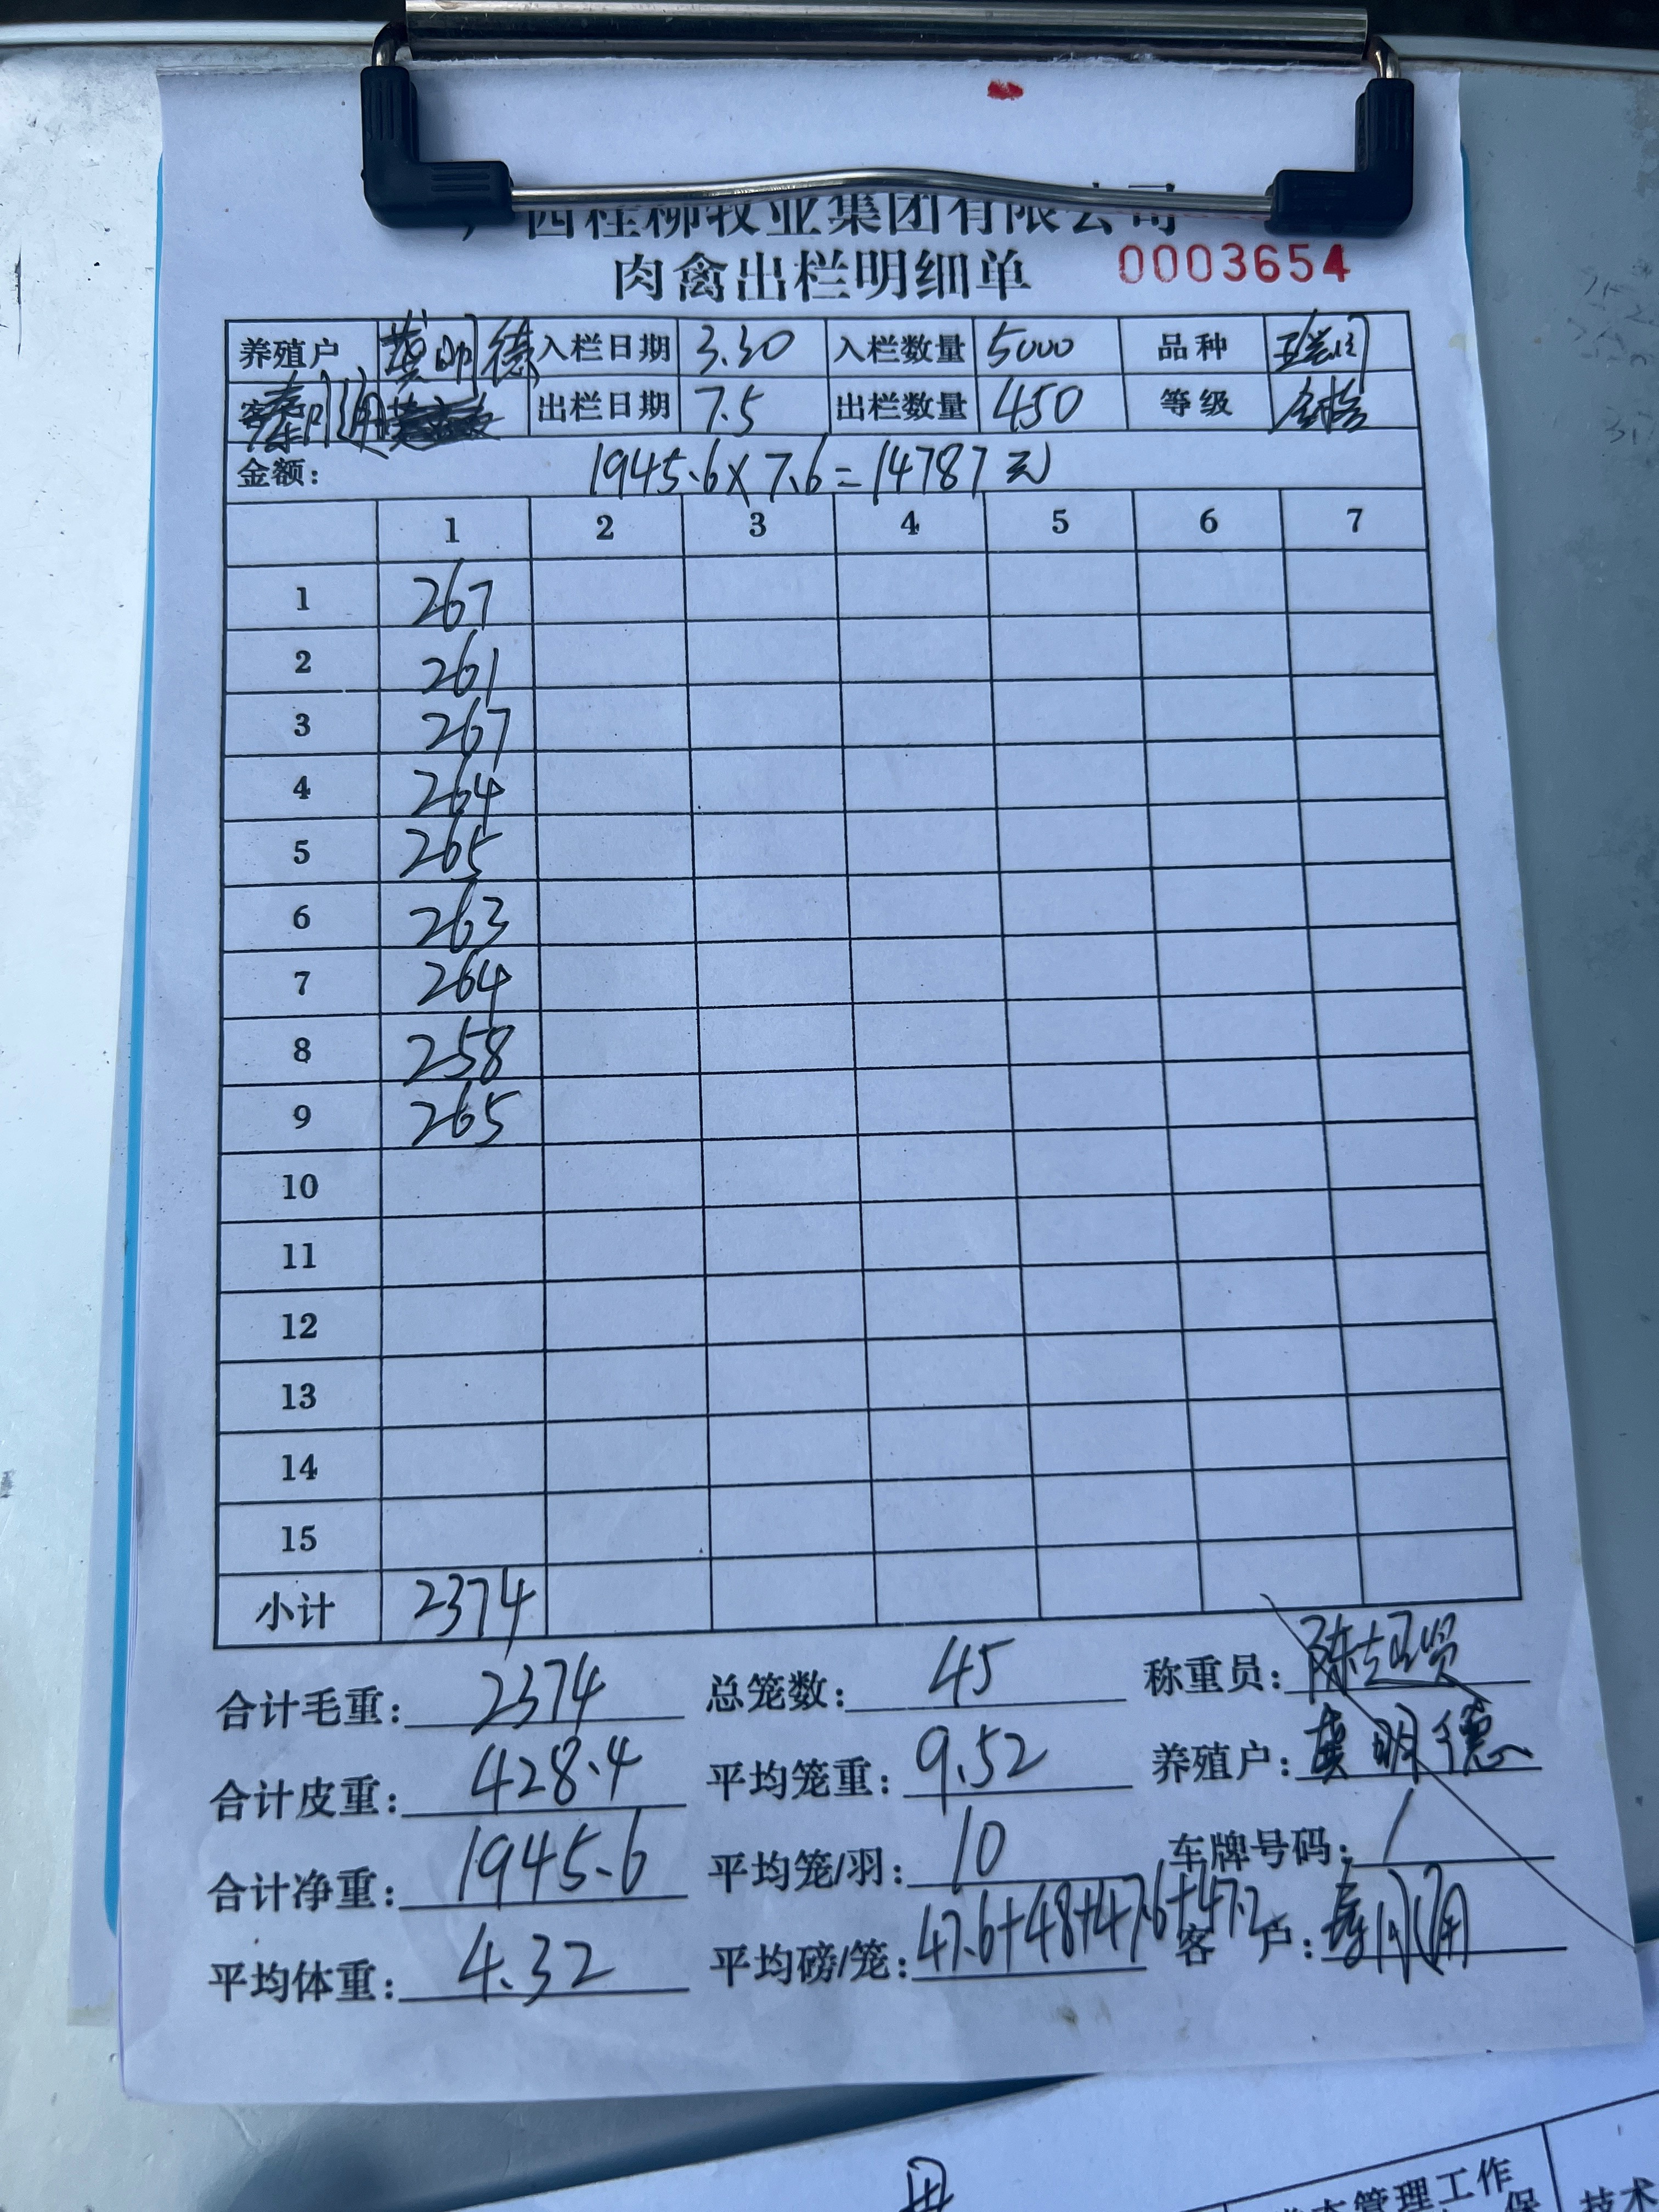 西桂柳牧业集团有限公司
肉禽出栏明细单 0003654
养殖户 龚明德 入栏日期 3.30 入栏数量 5000 品种
出栏日期 7.5 出栏数量 450 等级
金额: 1945.6×7.6=14787元
1 2 3 4 5 6 7
1 267
2 261
3 267
4 264
5 265
6 263
7 264
8 258
9 265
10
11
12
13
14
15
小计 2374
合计毛重: 2374 总笼数: 45 称重员:
合计皮重: 428.4 平均笼重: 9.52 养殖户: 龚明德
合计净重: 1945.6 平均笼/羽: 10 车牌号码: /
平均体重: 4.32 平均磅/笼: 47.6+48+47.6+47.2 客户:
管理工作
保
技术